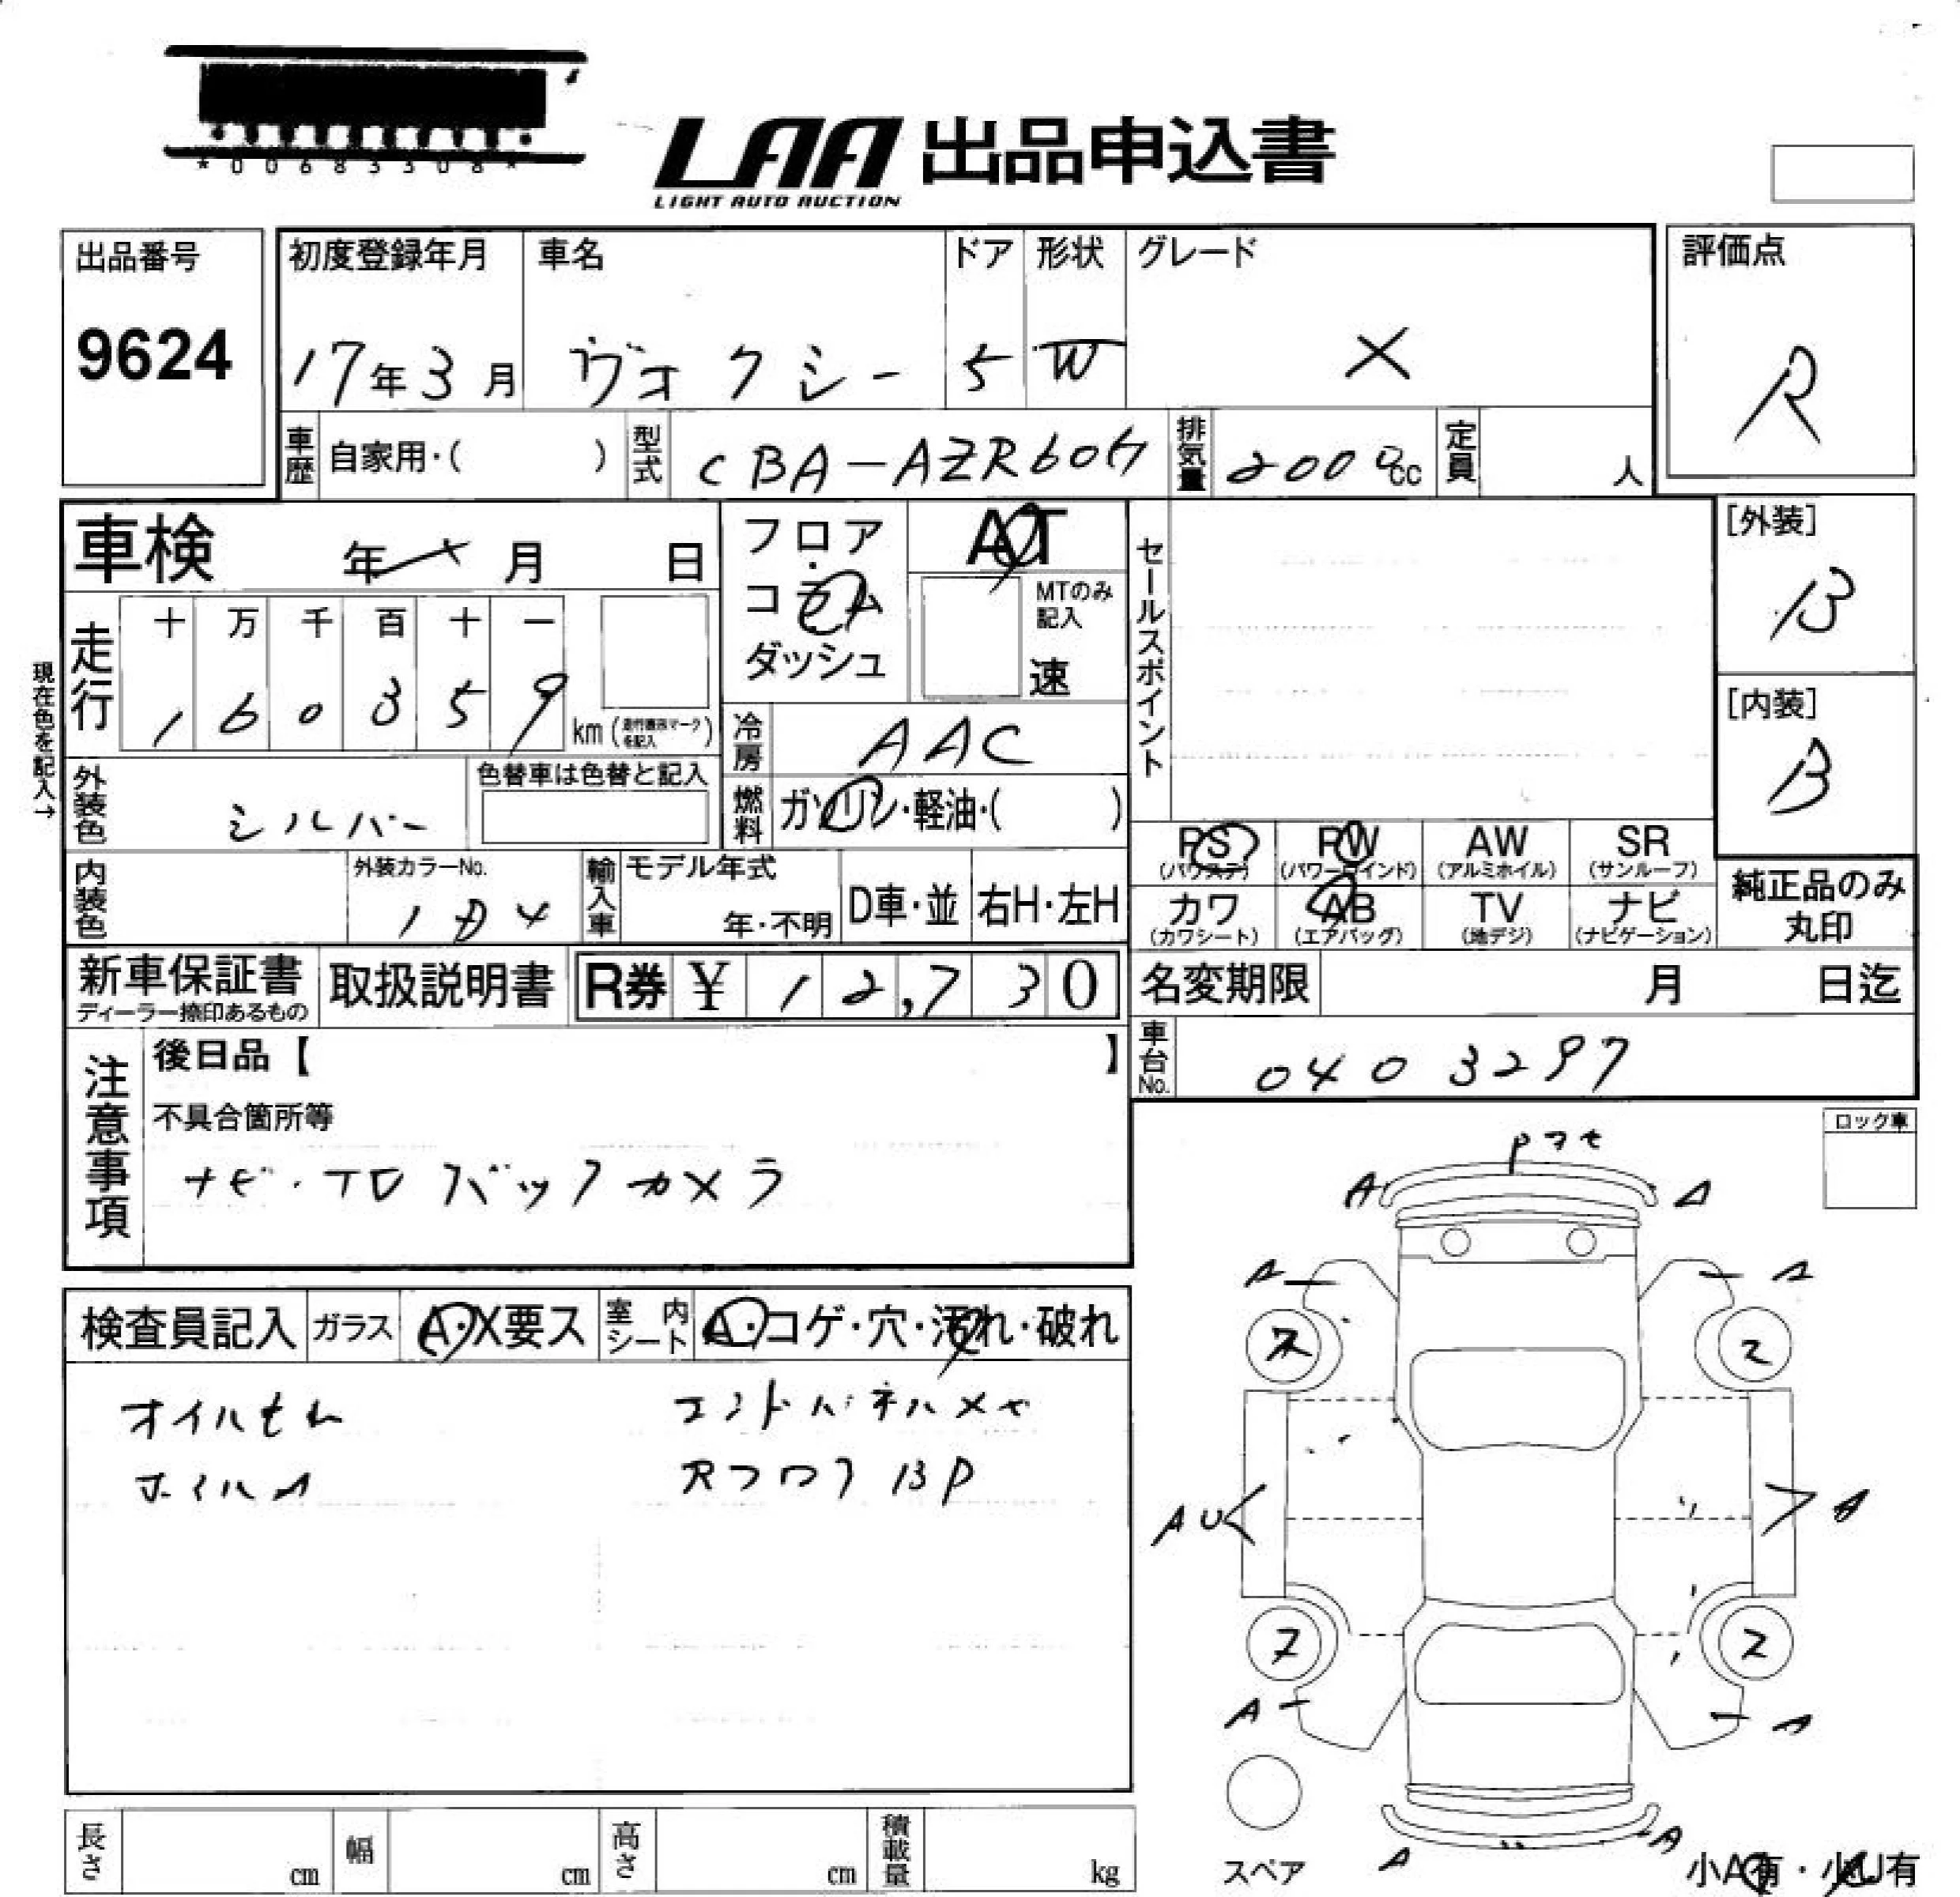 LAA 出品申込書
LIGHT AUTO AUCTION
出品番号
9624
初度登録年月
17年3月
車名
ヴォクシー
ドア
5
形状
W
グレード
X
評価点
R
車歴
自家用・( )
型式
CBA-AZR60G
排気量
2000cc
定員
人
車検
年 月 日
フロア
・
コラム
・
ダッシュ
AT
MTのみ
記入
速
セールスポイント
[外装]
B
[内装]
B
現在色を記入→
走行
十 万 千 百 十 一
1 6 0 3 5 9
km(走行問題マークを記入)
冷房
AAC
外装色
シルバー
色替車は色替と記入
燃料
ガソリン・軽油・( )
PS
(パワステ)
PW
(パワーウインド)
AW
(アルミホイル)
SR
(サンルーフ)
カワ
(カワシート)
AB
(エアバッグ)
TV
(地デジ)
ナビ
(ナビゲーション)
純正品のみ
丸印
内装色
外装カラーNo.
輸入車
モデル年式
年・不明
D車・並
右H・左H
新車保証書
ディーラー捺印あるもの
取扱説明書
R券 ¥ 12,730
名変期限
月 日迄
車台No.
0403297
注意事項
後日品【 】
不具合箇所等
ナビ・TV バックカメラ
ロック車
検査員記入
ガラス
A・X要ス
室内シート
A・コゲ・穴・汚れ・破れ
オイルもれ
ホイルA
エンドパネルメヤ
Rフロア BP
A
A
A
A
AU
A
A
A
A
A
スペア
小A有・小U有
長さ
cm
幅
cm
高さ
cm
積載量
kg